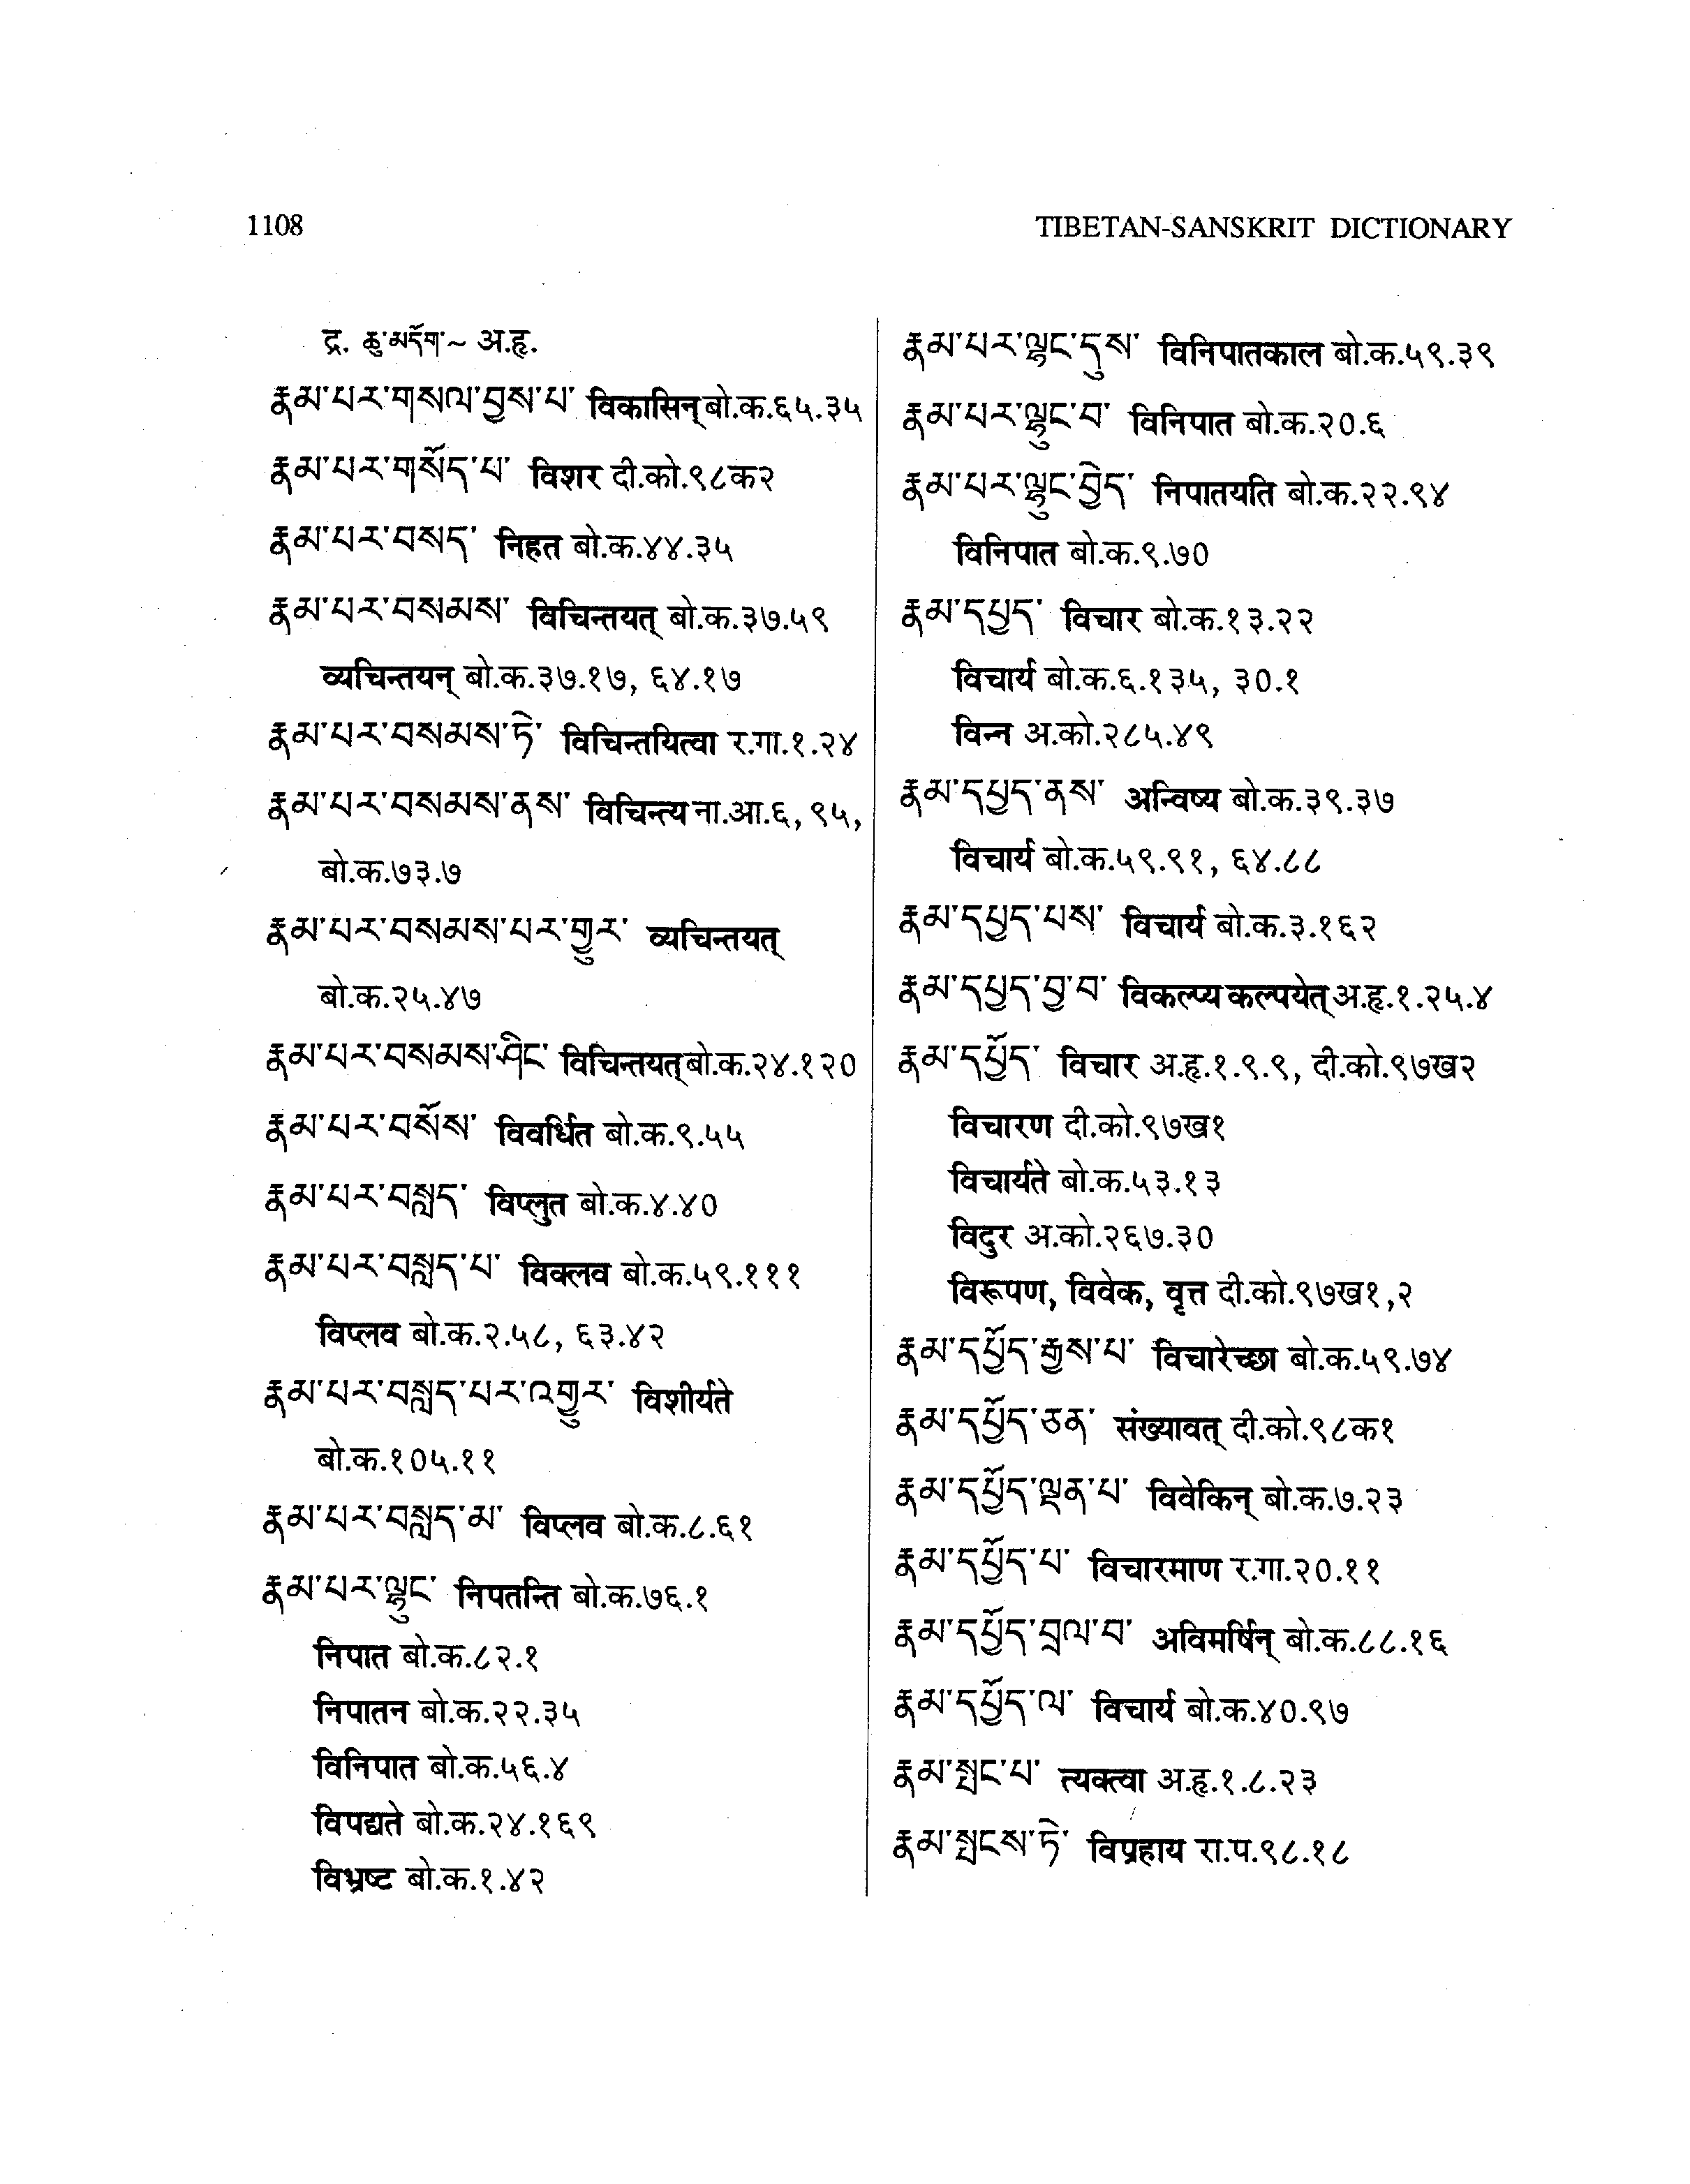 1108
TIBETAN-SANSKRIT DICTIONARY
द्र. ཆུ་མདོག་~ अ.हृ.
རྣམ་པར་གསལ་བྱས་པ་ विकासिन् बो.क.६५.३५
རྣམ་པར་གསོད་པ་ विशर दी.को.९८क२
རྣམ་པར་བསད་ निहत बो.क.४४.३५
རྣམ་པར་བསམས་ विचिन्तयत् बो.क.३७.५९
व्यचिन्तयन् बो.क.३७.१७, ६४.१७
རྣམ་པར་བསམས་ཏེ་ विचिन्तयित्वा र.गा.१.२४
རྣམ་པར་བསམས་ནས་ विचिन्त्य ना.आ.६, ९५,
बो.क.७३.७
རྣམ་པར་བསམས་པར་གྱུར་ व्यचिन्तयत्
बो.क.२५.४७
རྣམ་པར་བསམས་ཤིང་ विचिन्तयत् बो.क.२४.१२०
རྣམ་པར་བསོས་ विवर्धित बो.क.९.५५
རྣམ་པར་བསླད་ विप्लुत बो.क.४.४०
རྣམ་པར་བསླད་པ་ विक्लव बो.क.५९.१११
विप्लव बो.क.२.५८, ६३.४२
རྣམ་པར་བསླད་པར་འགྱུར་ विशीर्यते
बो.क.१०५.११
རྣམ་པར་བསླད་མ་ विप्लव बो.क.८.६१
རྣམ་པར་ལྷུང་ निपतन्ति बो.क.७६.१
निपात बो.क.८२.१
निपातन बो.क.२२.३५
विनिपात बो.क.५६.४
विपद्यते बो.क.२४.१६९
विभ्रष्ट बो.क.१.४२
རྣམ་པར་ལྟུང་དུས་ विनिपातकाल बो.क.५९.३९
རྣམ་པར་ལྟུང་བ་ विनिपात बो.क.२०.६
རྣམ་པར་ལྟུང་བྱེད་ निपातयति बो.क.२२.९४
विनिपात बो.क.९.७०
རྣམ་དཔྱད་ विचार बो.क.१३.२२
विचार्य बो.क.६.१३५, ३०.१
विन्न अ.को.२८५.४९
རྣམ་དཔྱད་ནས་ अन्विष्य बो.क.३९.३७
विचार्य बो.क.५९.९१, ६४.८८
རྣམ་དཔྱད་པས་ विचार्य बो.क.३.१६२
རྣམ་དཔྱད་བྱ་བ་ विकल्प्य कल्पयेत् अ.हृ.१.२५.४
རྣམ་དཔྱོད་ विचार अ.हृ.१.९.९, दी.को.९७ख२
विचारण दी.को.९७ख१
विचार्यते बो.क.५३.१३
विदुर अ.को.२६७.३०
विरूपण, विवेक, वृत्त दी.को.९७ख१,२
རྣམ་དཔྱོད་རྒྱས་པ་ विचारेच्छा बो.क.५९.७४
རྣམ་དཔྱོད་ཅན་ संख्यावत् दी.को.९८क१
རྣམ་དཔྱོད་ལྡན་པ་ विवेकिन् बो.क.७.२३
རྣམ་དཔྱོད་པ་ विचारमाण र.गा.२०.११
རྣམ་དཔྱོད་བྲལ་བ་ अविमर्षिन् बो.क.८८.१६
རྣམ་དཔྱོད་ལ་ विचार्य बो.क.४०.९७
རྣམ་སྤང་པ་ त्यक्त्वा अ.हृ.१.८.२३
རྣམ་སྤངས་ཏེ་ विप्रहाय रा.प.९८.१८